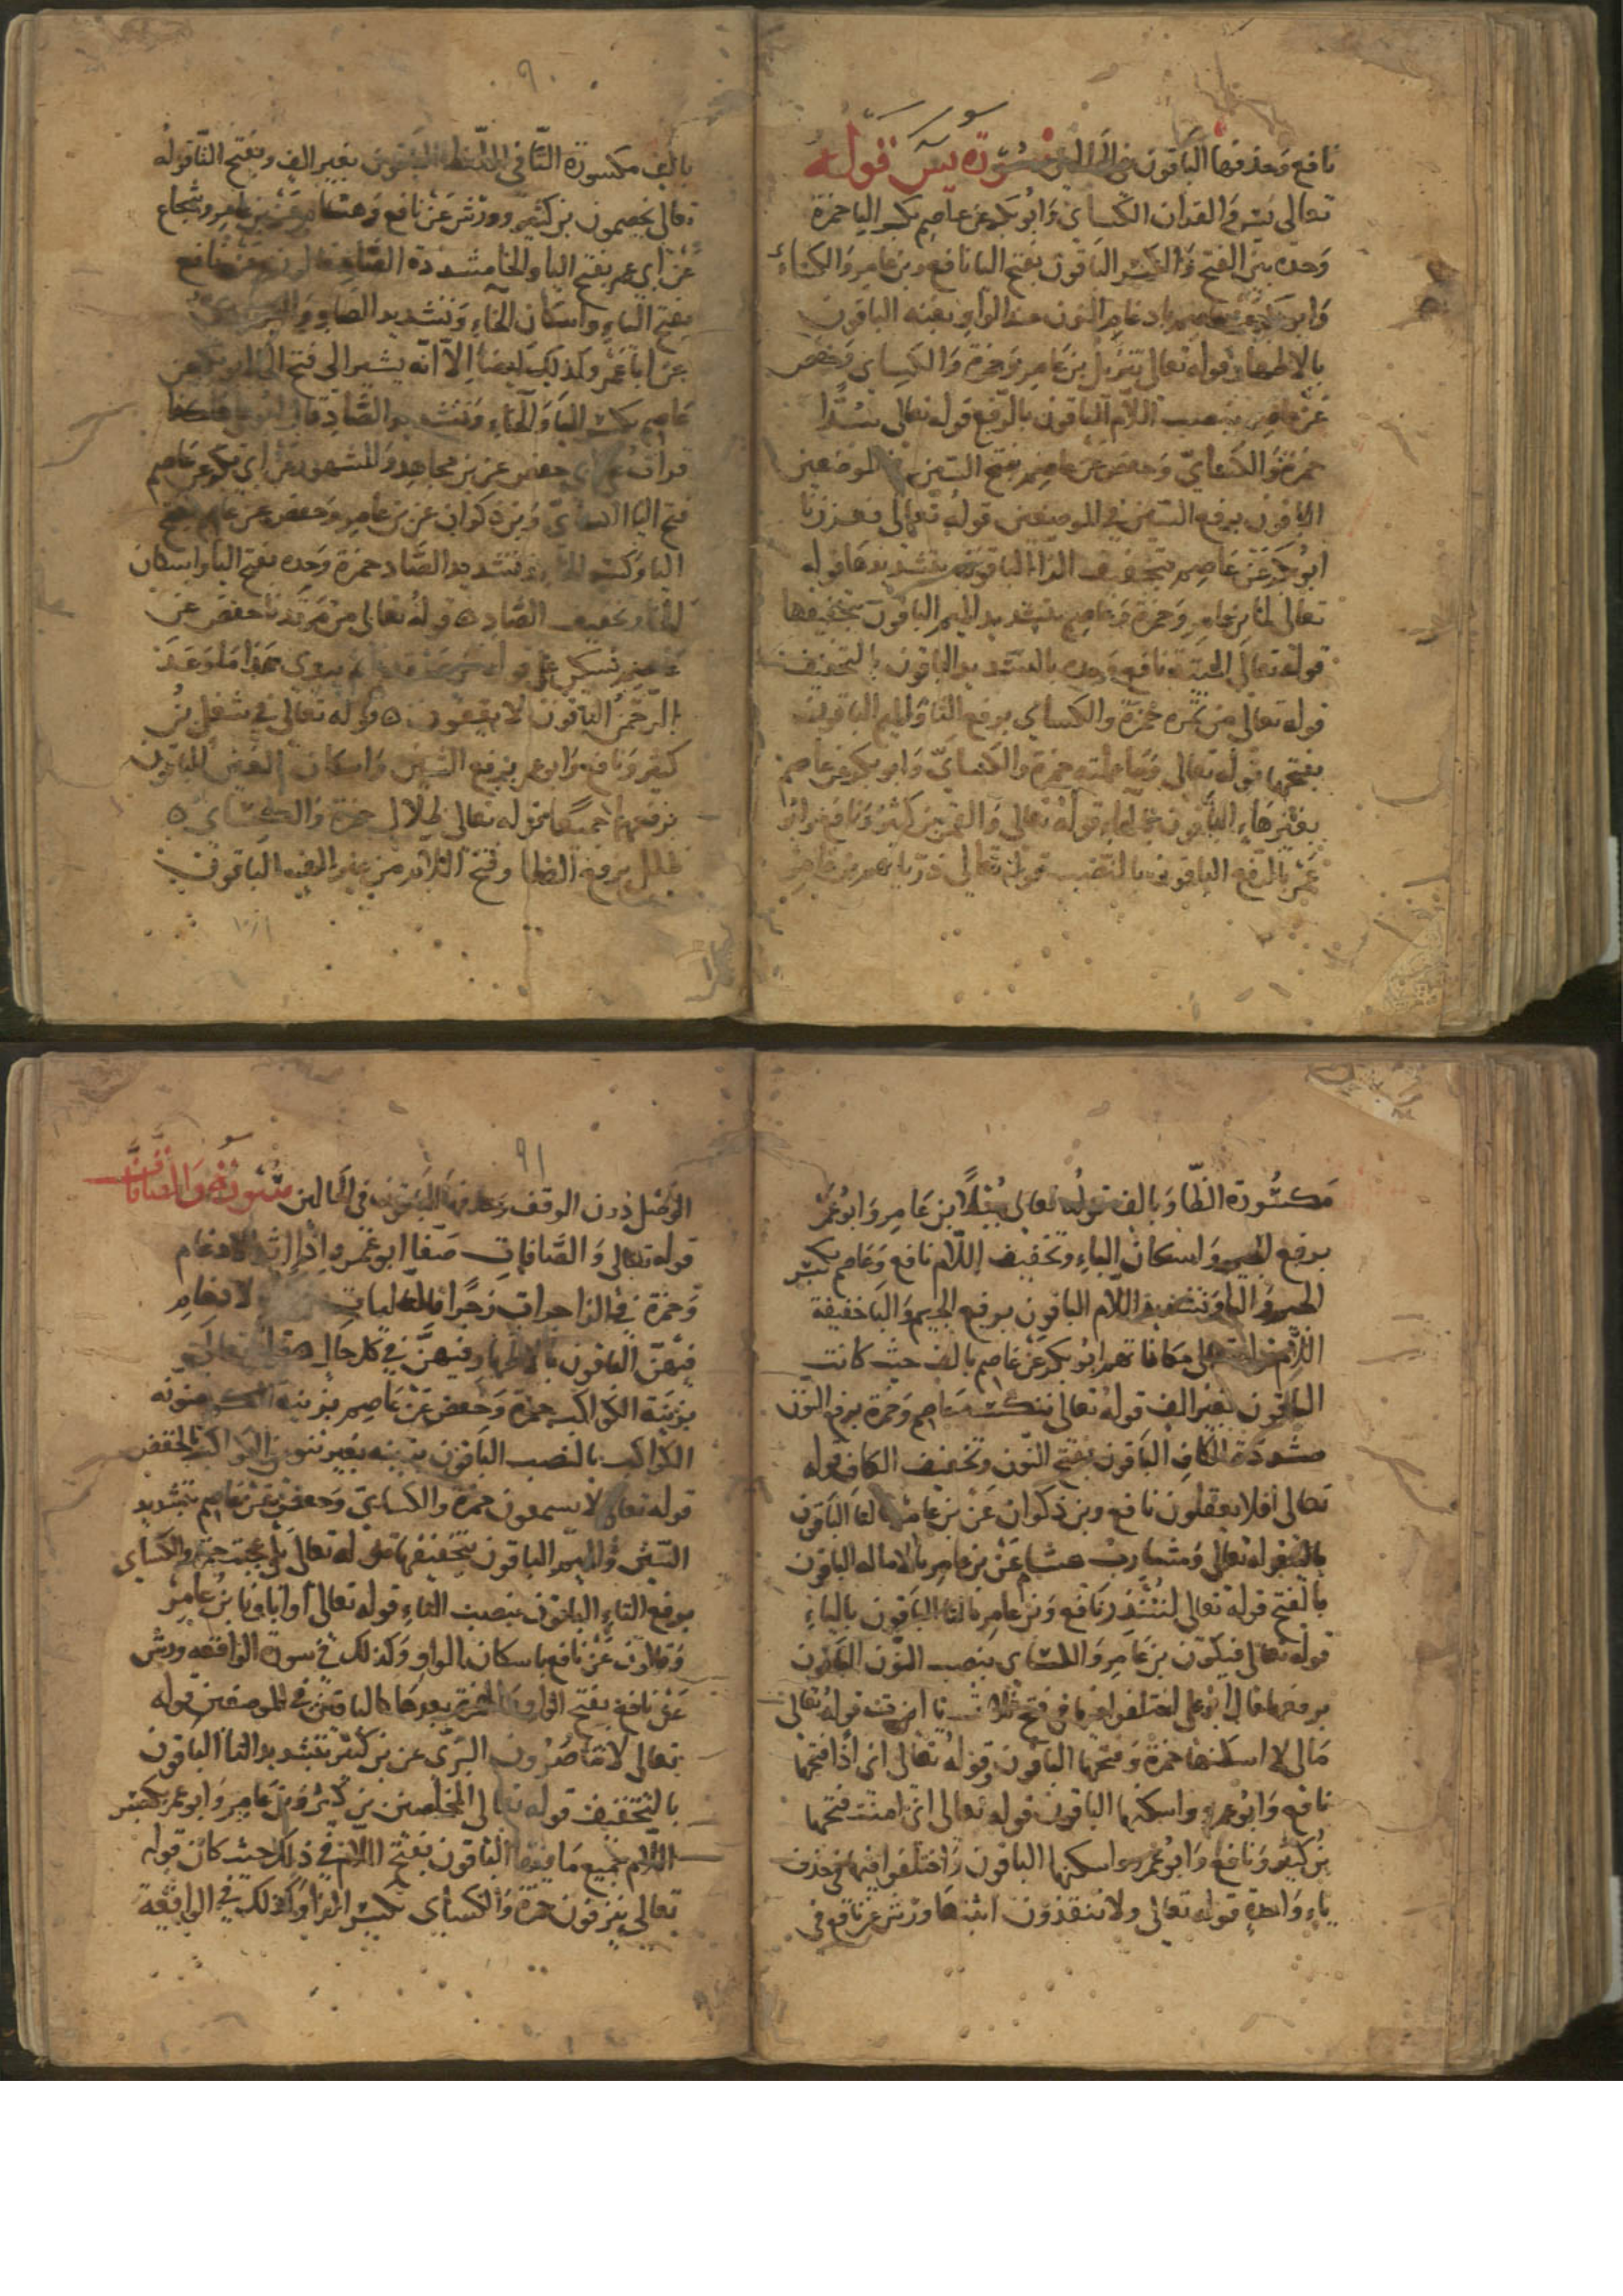 نافع وحذفها الباقون في الحالين سورة يس قوله
تعالى يس والقران الكساي وابو بكر عن عاصم بكسر اليا حمزة
وحده بين الفتح والكسر الباقون بفتح اليا نافع وبن عامر والكساي
وابو بكر عن عاصم بادغام النون عند الواو بغنه الباقون
بالاظهار قوله تعالى تنزيل بن عامر وحمزة والكساي وحفص
عن عاصم بنصب اللام الباقون بالرفع قوله تعالى سدا
حمزة والكساي وحفص عن عاصم بفتح السين في الموضعين
الباقون برفع السين في الموضعين قوله تعالى فعززنا
ابو بكر عن عاصم بتخفيف الزا الباقون بتشديدها قوله
تعالى لما بن عامر وحمزة وعاصم بتشديد الميم الباقون بتخفيفها
قوله تعالى الميتة نافع وحده بالتشديد الباقون بالتخفيف
قوله تعالى من ثمره حمزة والكساي برفع الثا والميم الباقون
بفتحهما قوله تعالى وما عملته حمزة والكساي وابو بكر عن عاصم
بغير هاء الباقون بالهاء قوله تعالى والقمر بن كثير ونافع وابو
عمر بالرفع الباقون بالنصب قوله تعالى ذرياتهم بن عامر
٩٠
بالف مكسورة التا في اللفظ الباقون بغير الف وبفتح التا قوله
تعالى يخصمون بن كثير وورش عن نافع وهشام عن بن عامر وشجاع
عن ابي عمر بفتح اليا والخا مشددة الصاد نافع
بفتح الياء واسكان الخاء وتشديد الصاد
عن ابا عمر وكذلك ايضا الا انه يشير الى فتح الخا ابو بكر عن
عاصم بكسر اليا والخاء وتشديد الصاد قال ابو علي هكذا
قرات على ابي حفص عن بن مجاهد والمشهور عن ابي بكر عن عاصم
فتح اليا الكساي وبن ذكوان عن بن عامر وحفص عن عاصم بفتح
اليا وكسر الخا وتشديد الصاد حمزة وحده بفتح اليا واسكان
الخا وتخفيف الصاد قوله تعالى من مرقدنا حفص عن
عاصم يسكن على قوله مرقدنا ثم يبتدي هذا ما وعد
الرحمن الباقون لا يقفون قوله تعالى في شغل بن
كثير ونافع وابو عمر برفع الشين واسكان الغين الباقون
برفعهما جميعا قوله تعالى ظلال حمزة والكساي
ظلل برفع الظا وفتح اللام من غير الف الباقون
مكسورة الظا وبالف قوله تعالى جبلا بن عامر وابو عمر
برفع الجيم واسكان الباء وتخفيف اللام نافع وعاصم بكسر
الجيم والبا وتشديد اللام الباقون برفع الجيم والبا خفيفة
اللام قوله تعالى مكاناتهم ابو بكر عن عاصم بالف حيث كانت
الباقون بغير الف قوله تعالى ننكسه عاصم وحمزة برفع النون
مشددة الكاف الباقون بفتح النون وتخفيف الكاف قوله
تعالى افلا يعقلون نافع وبن ذكوان عن بن عامر بالتا الباقون
باليا قوله تعالى ومشارب هشام عن بن عامر بالاماله الباقون
بالفتح قوله تعالى لتنذر نافع وبن عامر بالتا الباقون بالياء
قوله تعالى فيكون بن عامر والكساي بنصب النون الباقون
برفعها قال ابو علي اختلفوا فيها في فتح ثلاث ياءات قوله تعالى
مالي لا اسكنها حمزة وفتحها الباقون وقوله تعالى اني اذا فتحها
نافع وابو عمرو واسكنها الباقون قوله تعالى اني امنت فتحها
بن كثير ونافع وابو عمرو اسكنها الباقون واختلفوا فيها في حذف
ياء واحدة قوله تعالى ولا ينقذون اثبتها ورش عن نافع في
٩١
الوصل دون الوقف وحذفها الباقون في الحالين سورة والصافات
قوله تعالى والصافات صفا ابو عمرو اذا اثر الادغام
وحمزة في الزاجرات زجرا فالتاليات بالادغام
فيهن الباقون بالاظهار فيهن في كل حال قوله تعالى
بزينة الكواكب حمزة وحفص عن عاصم بزينة منونه
الكواكب بالنصب الباقون بزينه بغير تنوين الكواكب بالخفض
قوله تعالى لا يسمعون حمزة والكساي وحفص عن عاصم بتشديد
السين والميم الباقون بتخفيفها قوله تعالى بل عجبت حمزة والكساي
برفع التاء الباقون بنصب التاء قوله تعالى او اباونا بن عامر
وقالون عن نافع باسكان الواو وكذلك في سورة الواقعه ورش
عن نافع بفتح الواو والهمزة بعدها كالباقين في الموضعين قوله
تعالى لا تناصرون البزي عن بن كثير بتشديد التا الباقون
بالتخفيف قوله تعالى المخلصين بن كثير وبن عامر وابو عمر بكسر
اللام جميع ما فيها الباقون بفتح اللام في ذلك حيث كان قوله
تعالى ينزفون حمزة والكساي بكسر الزا وكذلك في الواقعة